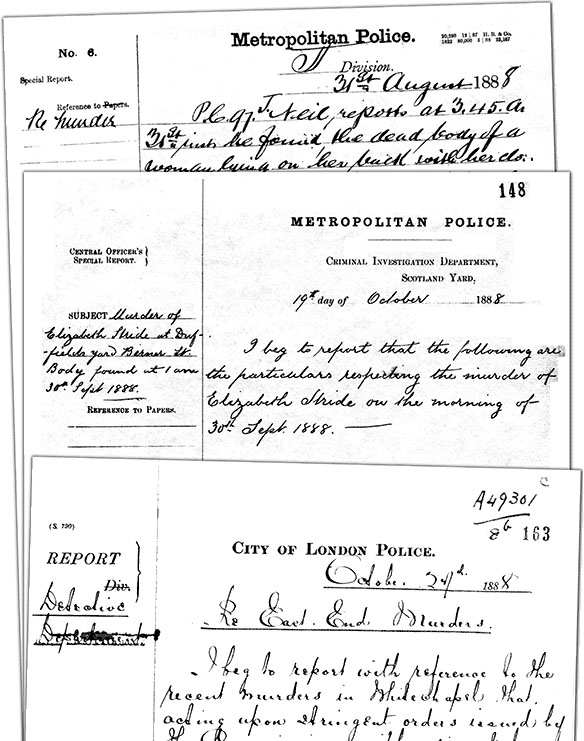 No. 6.
Special Report.
Reference to Papers.
Re Murder
Metropolitan Police.
J Division.
31st August 1888
P.C. 97J Neil, reports at 3.45. a
31st inst. he found the dead body of a
woman lying on her back with her clo
148
METROPOLITAN POLICE.
CENTRAL OFFICER'S
SPECIAL REPORT.
CRIMINAL INVESTIGATION DEPARTMENT,
SCOTLAND YARD,
19th day of October 1888
SUBJECT Murder of
Elizabeth Stride at Duf-
fields yard Berner St.
Body found at 1 am
30th Sept 1888.
REFERENCE TO PAPERS.
I beg to report that the following are
the particulars respecting the murder of
Elizabeth Stride on the morning of
30th Sept. 1888.
C
A49301
8b 163
(S. 799)
REPORT
Div.
Detective
Department.
CITY OF LONDON POLICE.
Octobr. 27th. 1888
Re East End Murders.
I beg to report with reference to the
recent murders in Whitechapel that,
acting upon stringent orders issued by